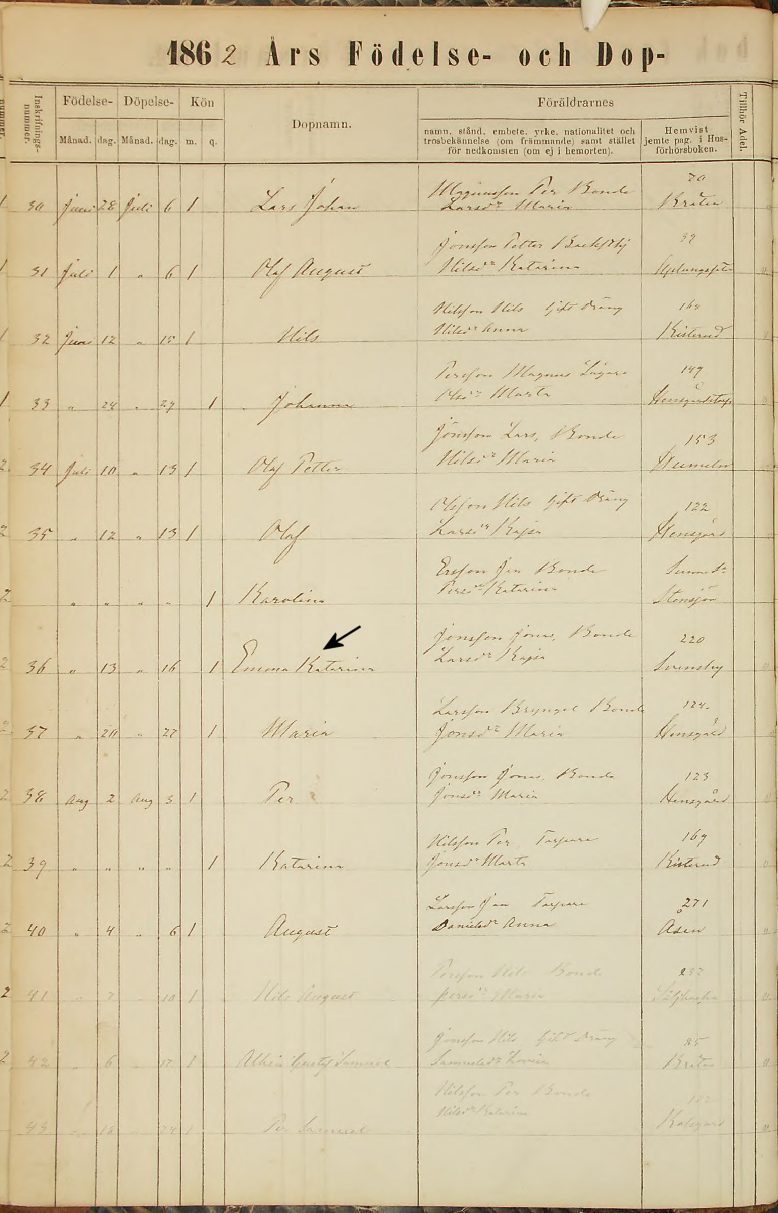 1862 Års Födelse- och Dop-
Inskrifnings-nummer.
Födelse- Döpelse- Kön
Månad. dag. Månad. dag. m. q.
Dopnamn.
Föräldrarnes
namn, stånd, embete, yrke, nationalitet och
trosbekännelse (om främmande) samt stället
för nedkomsten (om ej i hemorten).
Hemvist
jemte pag. i Hus-
förhörsboken.
Tillhör Adel.
Magnusson Per Bonde 70
30 Juni 28 Juli 6 1 Lars Johan Larsdr Maria Bråten
Jonsson Petter 39
31 Juli 1 " 6 1 Olof August Nilsdr Katarina
Nilsson Nils gift Dräng 164
32 Juni 12 " 15 1 Nils Nilsdr Anna Kisterud
Persson Magnus 149
33 " 24 " 29 1 Johanna Olsdr Marta
Jonsson Lars, Bonde 153
34 Juli 10 " 13 1 Olof Petter Nilsdr Maria
Olsson Nils gift Dräng 122
35 " 12 " 13 1 Olof Larsdr Kajsa Hensgård
Ersson Jan Bonde
" " " " 1 Karolina Persdr Katarina Stensjön
Jonsson Jonas, Bonde 220
36 " 13 " 16 1 Emma Katarina Larsdr Kajsa Svensby
Larsson Bryngel Bonde 124
37 " 20 " 27 1 Maria Jonsdr Maria Hensgård
Jonsson Jonas, Bonde 123
38 Aug 2 Aug 3 1 Per Jonsdr Maria Hensgård
Nilsson Per Torpare 169
39 " " " " 1 Katarina Jonsdr Marta Kisterud
Larsson Jan Torpare 271
40 " 4 " 6 1 August Danielsdr Anna Åsen
Persson Nils Bonde 237
41 " 7 " 10 1 Nils August Persdr Maria
Jonsson Nils gift Dräng 85
42 " 6 " 17 1 Gustaf Samuel Samuelsdr Lovisa Bråten
Nilsson Per Bonde
43 " 24 1 Per Samuel Nilsdr Katarina